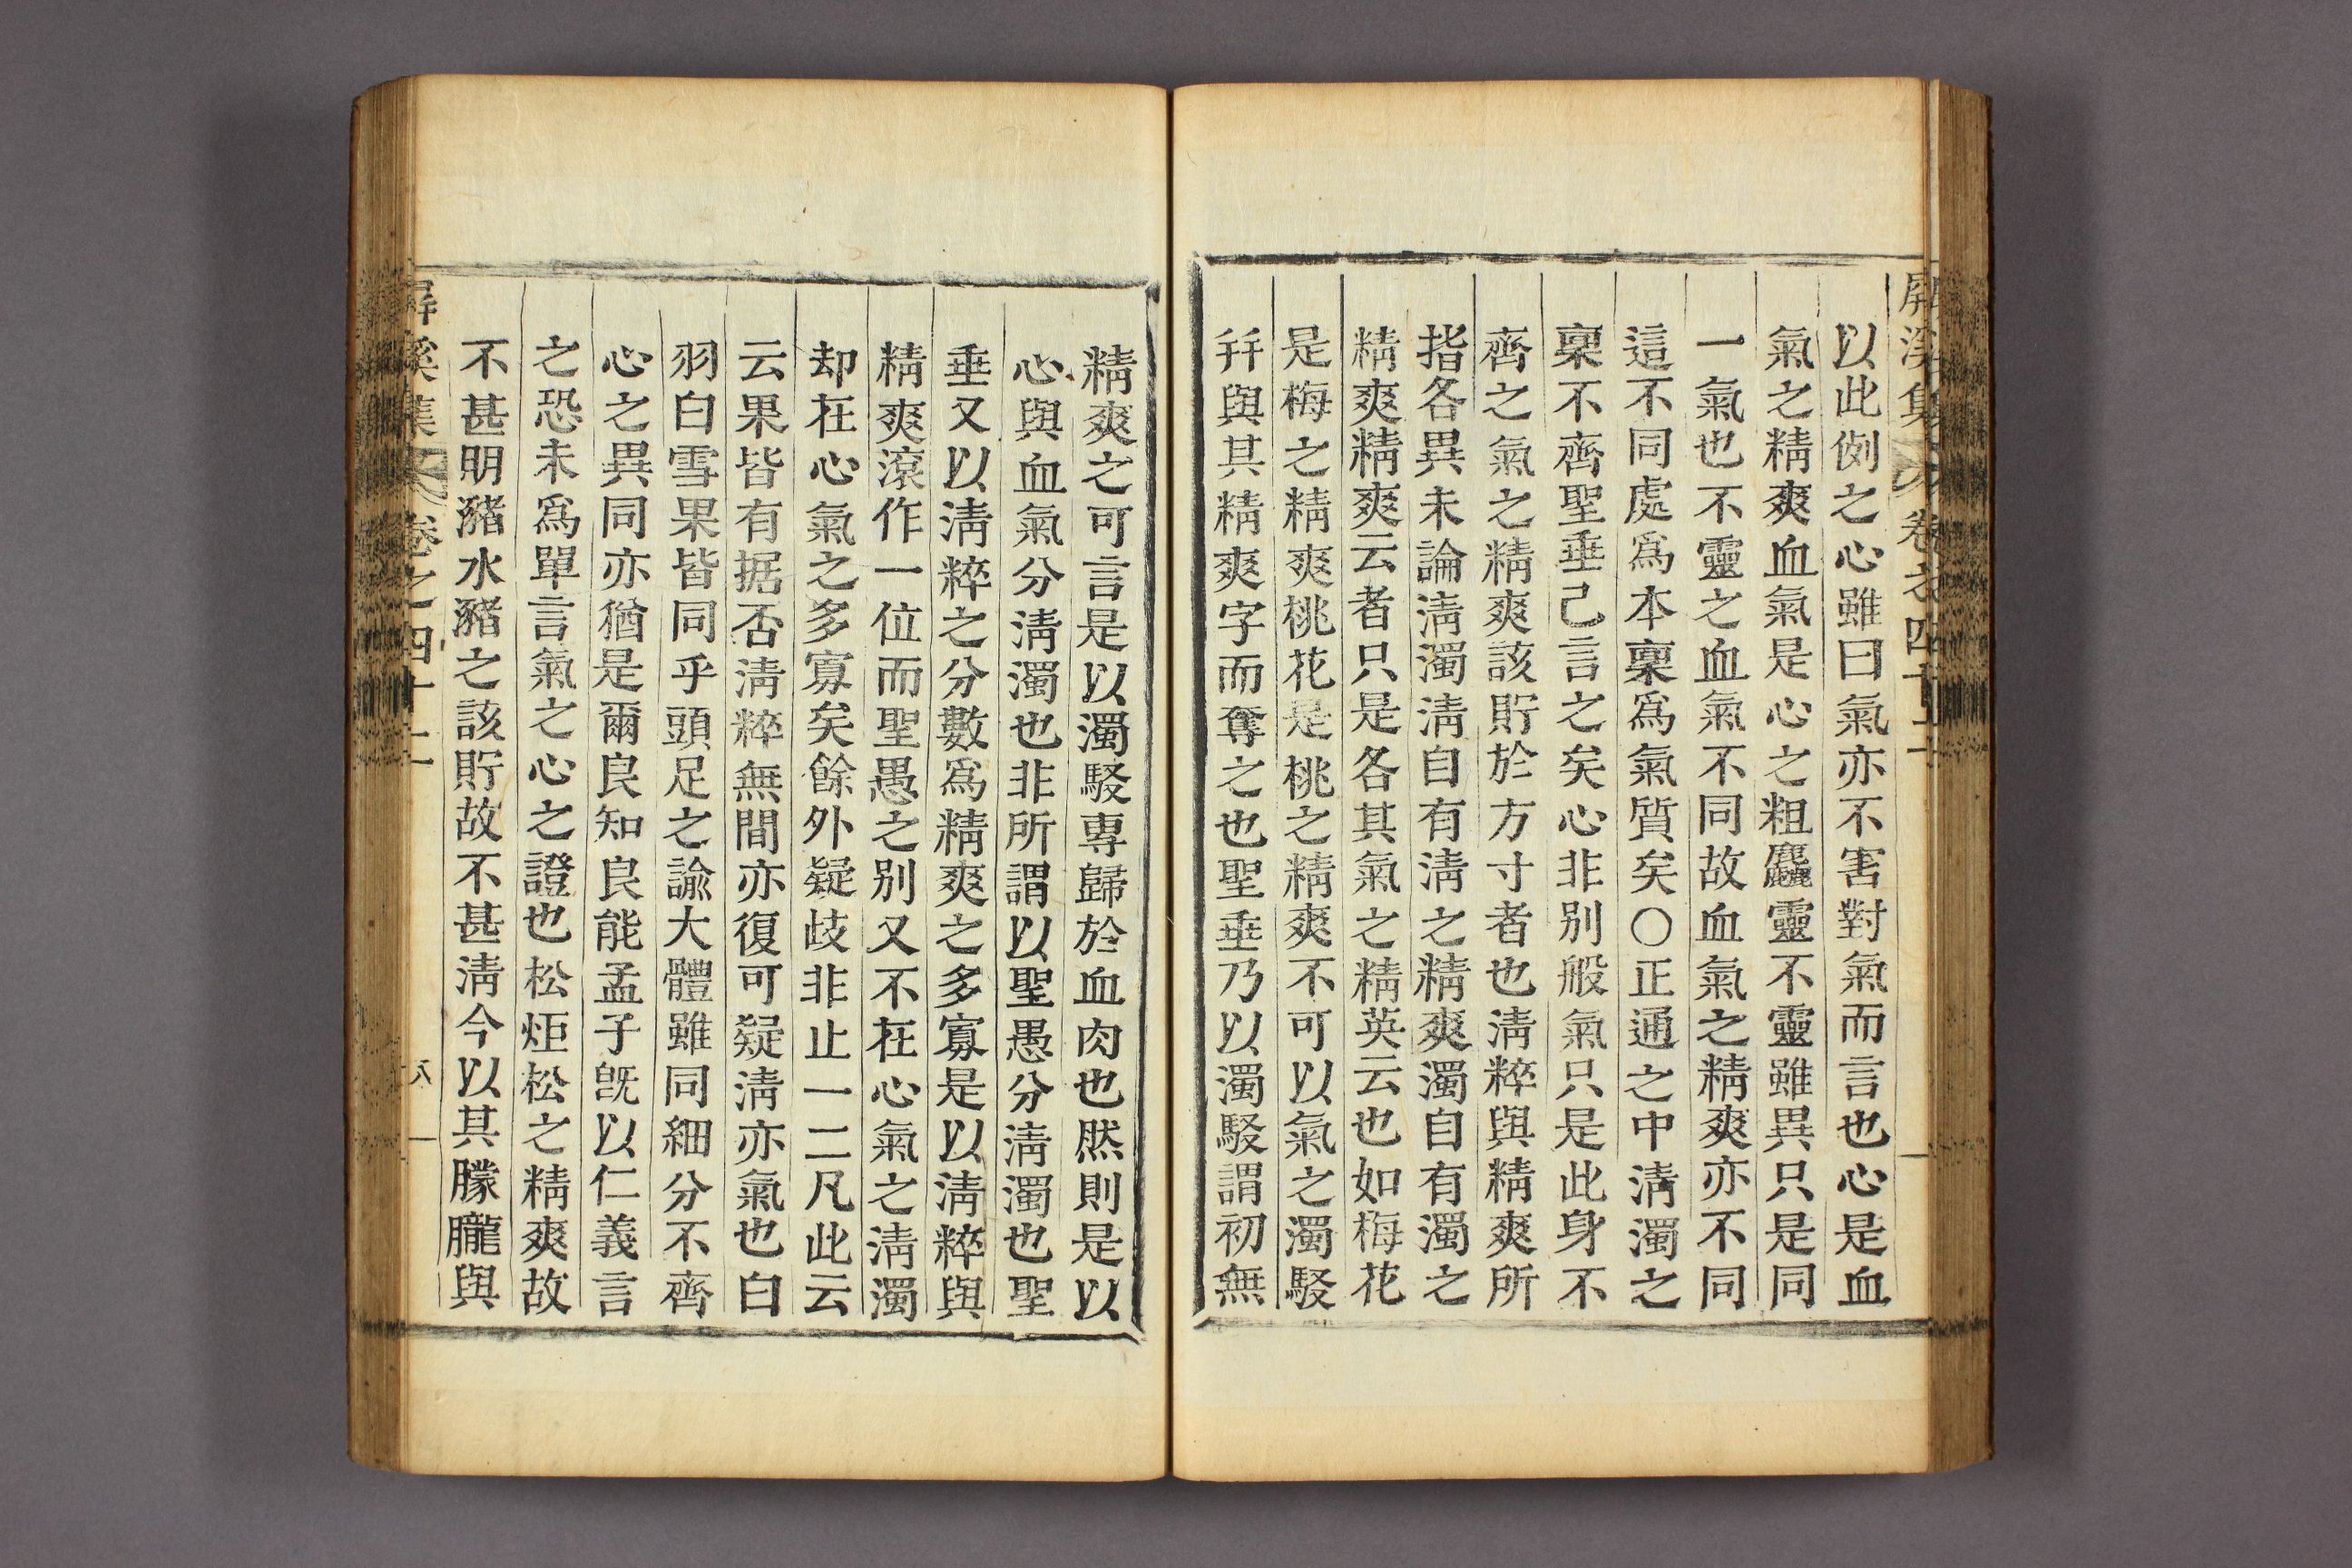 屛溪集
卷之四十二
以此例之心雖曰氣亦不害對氣而言也心是血
氣之精爽血氣是心之粗麤靈不靈雖異只是同
一氣也不靈之血氣不同故血氣之精爽亦不同
這不同處爲本稟爲氣質矣○正通之中淸濁之
稟不齊聖垂己言之矣心非別般氣只是此身不
齊之氣之精爽該貯於方寸者也淸粹與精爽所
指各異未論淸濁淸自有淸之精爽濁自有濁之
精爽精爽云者只是各其氣之精英云也如梅花
是梅之精爽桃花是桃之精爽不可以氣之濁駁
幷與其精爽字而奪之也聖垂乃以濁駁謂初無
精爽之可言是以濁駁專歸於血肉也然則是以
心與血氣分淸濁也非所謂以聖愚分淸濁也聖
垂又以淸粹之分數爲精爽之多寡是以淸粹與
精爽滾作一位而聖愚之別又不在心氣之淸濁
却在心氣之多寡矣餘外疑歧非止一二凡此云
云果皆有据否淸粹無間亦復可疑淸亦氣也白
羽白雪果皆同乎頭足之諭大體雖同細分不齊
心之異同亦猶是爾良知良能孟子旣以仁義言
之恐未爲單言氣之心之證也松炬松之精爽故
不甚明豬水豬之該貯故不甚淸今以其朦朧與
屛溪集
卷之四十二
八